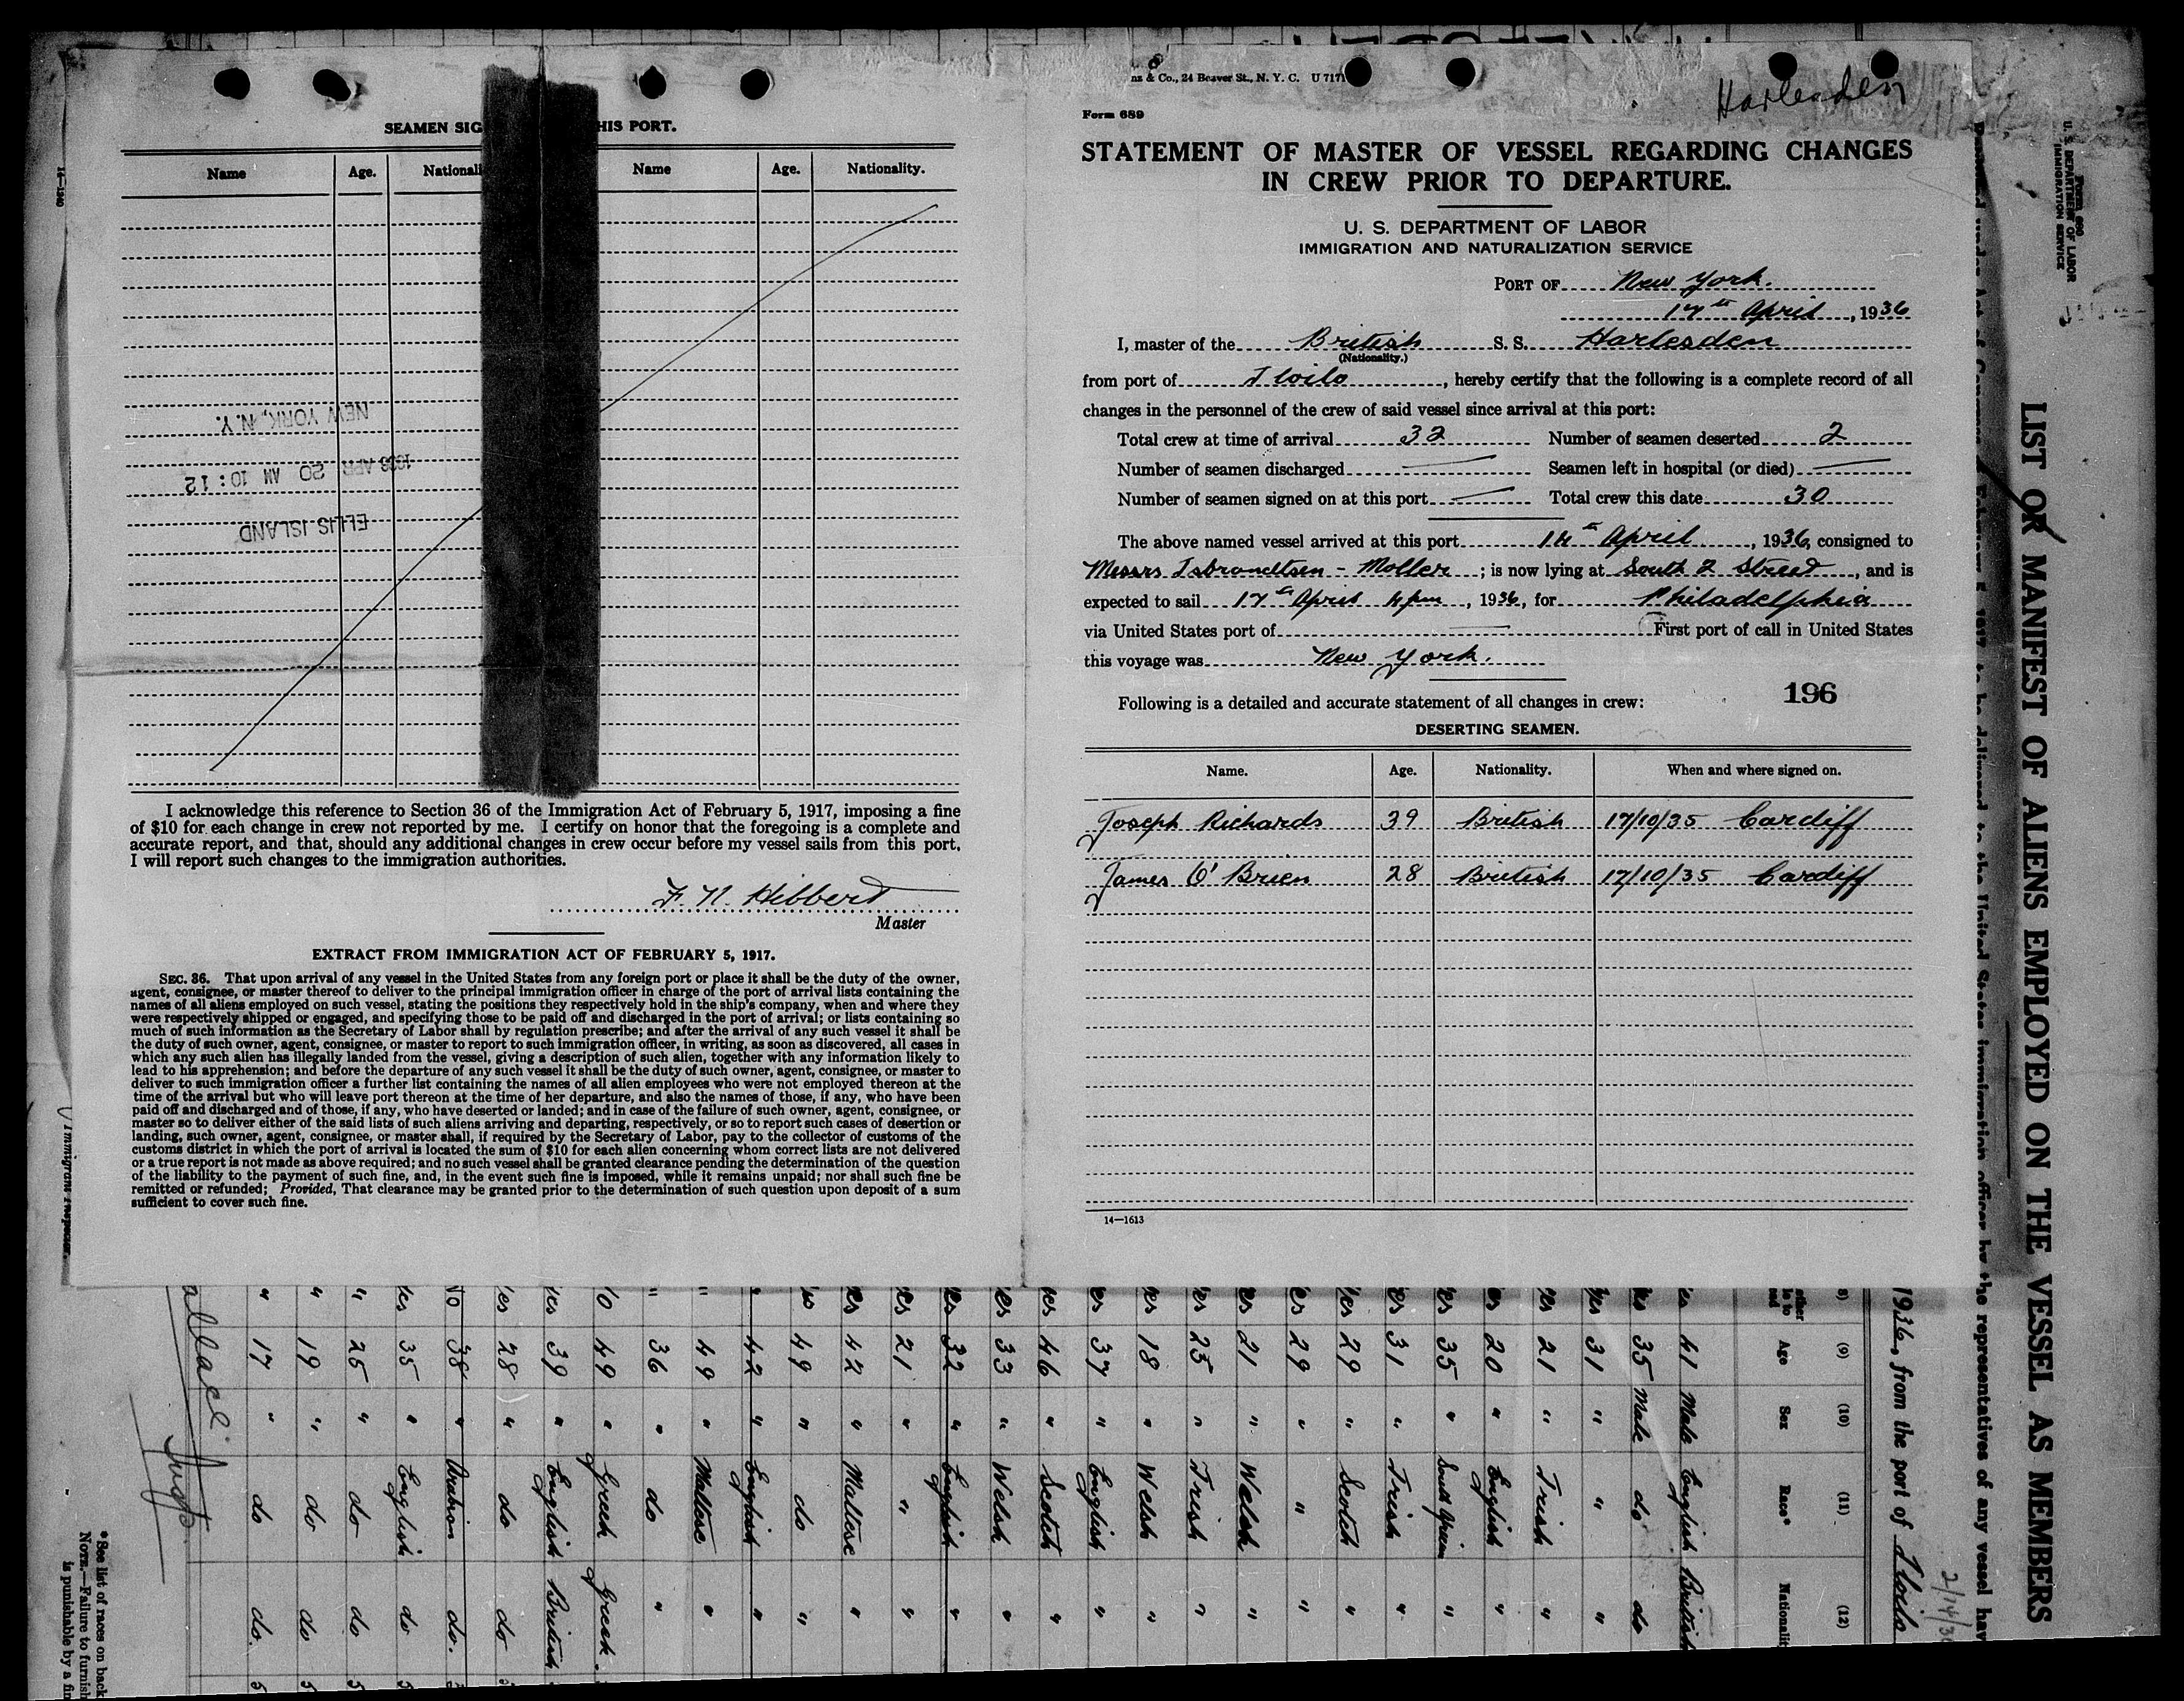 SEAMEN SIG HIS PORT.
Name Age. Nationali Name Age. Nationality.
NEW YORK, N.Y.
1936 APR 20 AM 10:12
ELLIS ISLAND
I acknowledge this reference to Section 36 of the Immigration Act of February 5, 1917, imposing a fine
of $10 for each change in crew not reported by me. I certify on honor that the foregoing is a complete and
accurate report, and that, should any additional changes in crew occur before my vessel sails from this port,
I will report such changes to the immigration authorities.
F. N. Hibbert
Master
EXTRACT FROM IMMIGRATION ACT OF FEBRUARY 5, 1917.
SEC. 36. That upon arrival of any vessel in the United States from any foreign port or place it shall be the duty of the owner,
agent, consignee, or master thereof to deliver to the principal immigration officer in charge of the port of arrival lists containing the
names of all aliens employed on such vessel, stating the positions they respectively hold in the ship's company, when and where they
were respectively shipped or engaged, and specifying those to be paid off and discharged in the port of arrival; or lists containing so
much of such information as the Secretary of Labor shall by regulation prescribe; and after the arrival of any such vessel it shall be
the duty of such owner, agent, consignee, or master to report to such immigration officer, in writing, as soon as discovered, all cases in
which any such alien has illegally landed from the vessel, giving a description of such alien, together with any information likely to
lead to his apprehension; and before the departure of any such vessel it shall be the duty of such owner, agent, consignee, or master to
deliver to such immigration officer a further list containing the names of all alien employees who were not employed thereon at the
time of the arrival but who will leave port thereon at the time of her departure, and also the names of those, if any, who have been
paid off and discharged and of those, if any, who have deserted or landed; and in case of the failure of such owner, agent, consignee, or
master so to deliver either of the said lists of such aliens arriving and departing, respectively, or so to report such cases of desertion or
landing, such owner, agent, consignee, or master shall, if required by the Secretary of Labor, pay to the collector of customs of the
customs district in which the port of arrival is located the sum of $10 for each alien concerning whom correct lists are not delivered
or a true report is not made as above required; and no such vessel shall be granted clearance pending the determination of the question
of the liability to the payment of such fine, and, in the event such fine is imposed, while it remains unpaid; nor shall such fine be
remitted or refunded; Provided, That clearance may be granted prior to the determination of such question upon deposit of a sum
sufficient to cover such fine.
& Co., 24 Beaver St., N. Y. C. U 7171
Harlesden
Form 689
STATEMENT OF MASTER OF VESSEL REGARDING CHANGES
IN CREW PRIOR TO DEPARTURE.
U. S. DEPARTMENT OF LABOR
IMMIGRATION AND NATURALIZATION SERVICE
PORT OF New York.
17th April, 1936
I, master of the British S. S. Harlesden
(Nationality.)
from port of Iloilo, hereby certify that the following is a complete record of all
changes in the personnel of the crew of said vessel since arrival at this port:
Total crew at time of arrival 32 Number of seamen deserted 2
Number of seamen discharged — Seamen left in hospital (or died) —
Number of seamen signed on at this port — Total crew this date 30
The above named vessel arrived at this port 14th April, 1936, consigned to
Messrs Isbrandtsen - Moller; is now lying at South 2 Street, and is
expected to sail 17th April 4 pm, 1936, for Philadelphia
via United States port of — First port of call in United States
this voyage was New York.
196
Following is a detailed and accurate statement of all changes in crew:
DESERTING SEAMEN.
Name. Age. Nationality. When and where signed on.
Joseph Richards 39 British 17/10/35 Cardiff
James O'Brien 28 British 17/10/35 Cardiff
14—1613
U. S. DEPARTMENT OF LABOR
IMMIGRATION SERVICE
LIST OR MANIFEST OF ALIENS EMPLOYED ON THE VESSEL AS MEMBERS
to be delivered to the United States immigration officer by the representatives of any vessel hav
1936, from the port of Iloilo
(9) (10) (11) (12)
Age Sex Race* Nationalit
41 Male English British
35 Male do do
31 " " "
21 " Irish "
20 " English "
35 "
31 " Irish "
29 " Scotch "
29 " " "
21 " Welsh "
23 " Irish "
18 " Welsh "
37 " English "
46 " Scotch "
33 " Welsh "
32 " English "
21 " " "
42 " Maltese "
49 " do "
42 " English "
49 " Maltese "
36 " do "
49 " Greek Greek.
39 " English British
28 " do do
38 " do.
35 " English do
25 " do do
19 " do do
17 " do do.
* See list of races on back
NOTE.—Failure to furnish
is punishable by a fin